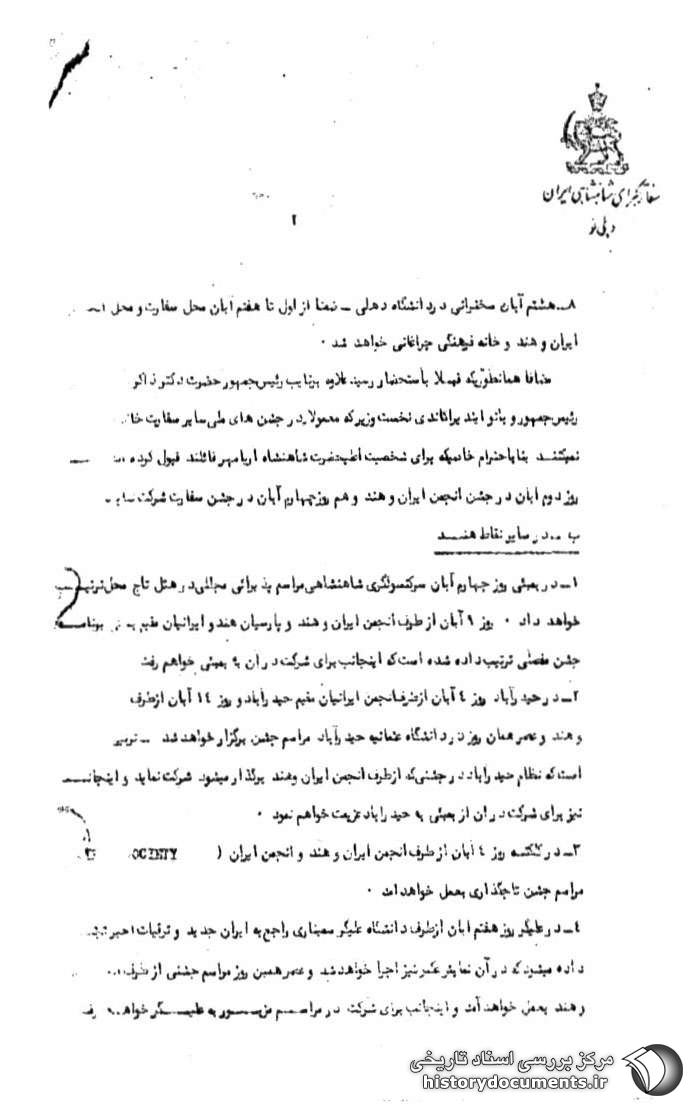 سفارت کبرای شاهنشاهی ایران
دهلی نو
۲
۸ــ هشتم آبان سخنرانی در دانشگاه دهلی ــ ضمنا از اول تا هفتم آبان محل سفارت و محل
ایران و هند و خانه فرهنگی چراغانی خواهد شد ۰
مضافا همانطوریکه قبلا باستحضار رسید علاوه برنایب رئیس جمهور حضرت دکتر ذاکر
رئیس جمهور و بانو ایندیراگاندی نخست وزیر که معمولا در جشن های ملی سایر سفارت
نمیکنند بنا باحترام خاصیکه برای شخصیت اعلیحضرت شاهنشاه آریامهر قائلند قبول کرده
روز دوم آبان در جشن انجمن ایران و هند و هم روز چهارم آبان در جشن سفارت شرکت
ب ــ در سایر نقاط هند
۱ــ در بمبئی روز چهارم آبان سرکنسولگری شاهنشاهی مراسم پذیرائی مجللی در هتل تاج محل ترتیب
خواهد داد ۰ روز ۹ آبان از طرف انجمن ایران و هند و پارسیان هند و ایرانیان مقیم برنامه
جشن مفصلی ترتیب داده شده است که اینجانب برای شرکت در آن به بمبئی خواهم رفت
۲ــ در حیدرآباد روز ۴ آبان از طرف انجمن ایرانیان مقیم حیدرآباد و روز ۱۴ آبان از طرف
و هند و عصر همان روز در دانشگاه عثمانیه حیدرآباد مراسم جشن برگزار خواهد شد
است که نظام حیدرآباد در جشنی که از طرف انجمن ایران و هند برگذار میشود شرکت نماید و اینجانب
نیز برای شرکت در آن از بمبئی به حیدرآباد عزیمت خواهم نمود ۰
۳ــ در کلکته روز ۴ آبان از طرف انجمن ایران و هند و انجمن ایران ( OCIETY
مراسم جشن تاجگذاری بعمل خواهد آمد ۰
۴ــ در علیگر روز هفتم آبان از طرف دانشگاه علیگر سمیناری راجع به ایران جدید و ترقیات اخیر
داده میشود که در آن نمایش عکس نیز اجرا خواهد شد و عصر همین روز مراسم جشنی از طرف
و هند بعمل خواهد آمد و اینجانب برای شرکت در مراسم مزبور به علیگر خواهم رفت
مرکز بررسی اسناد تاریخی
historydocuments.ir